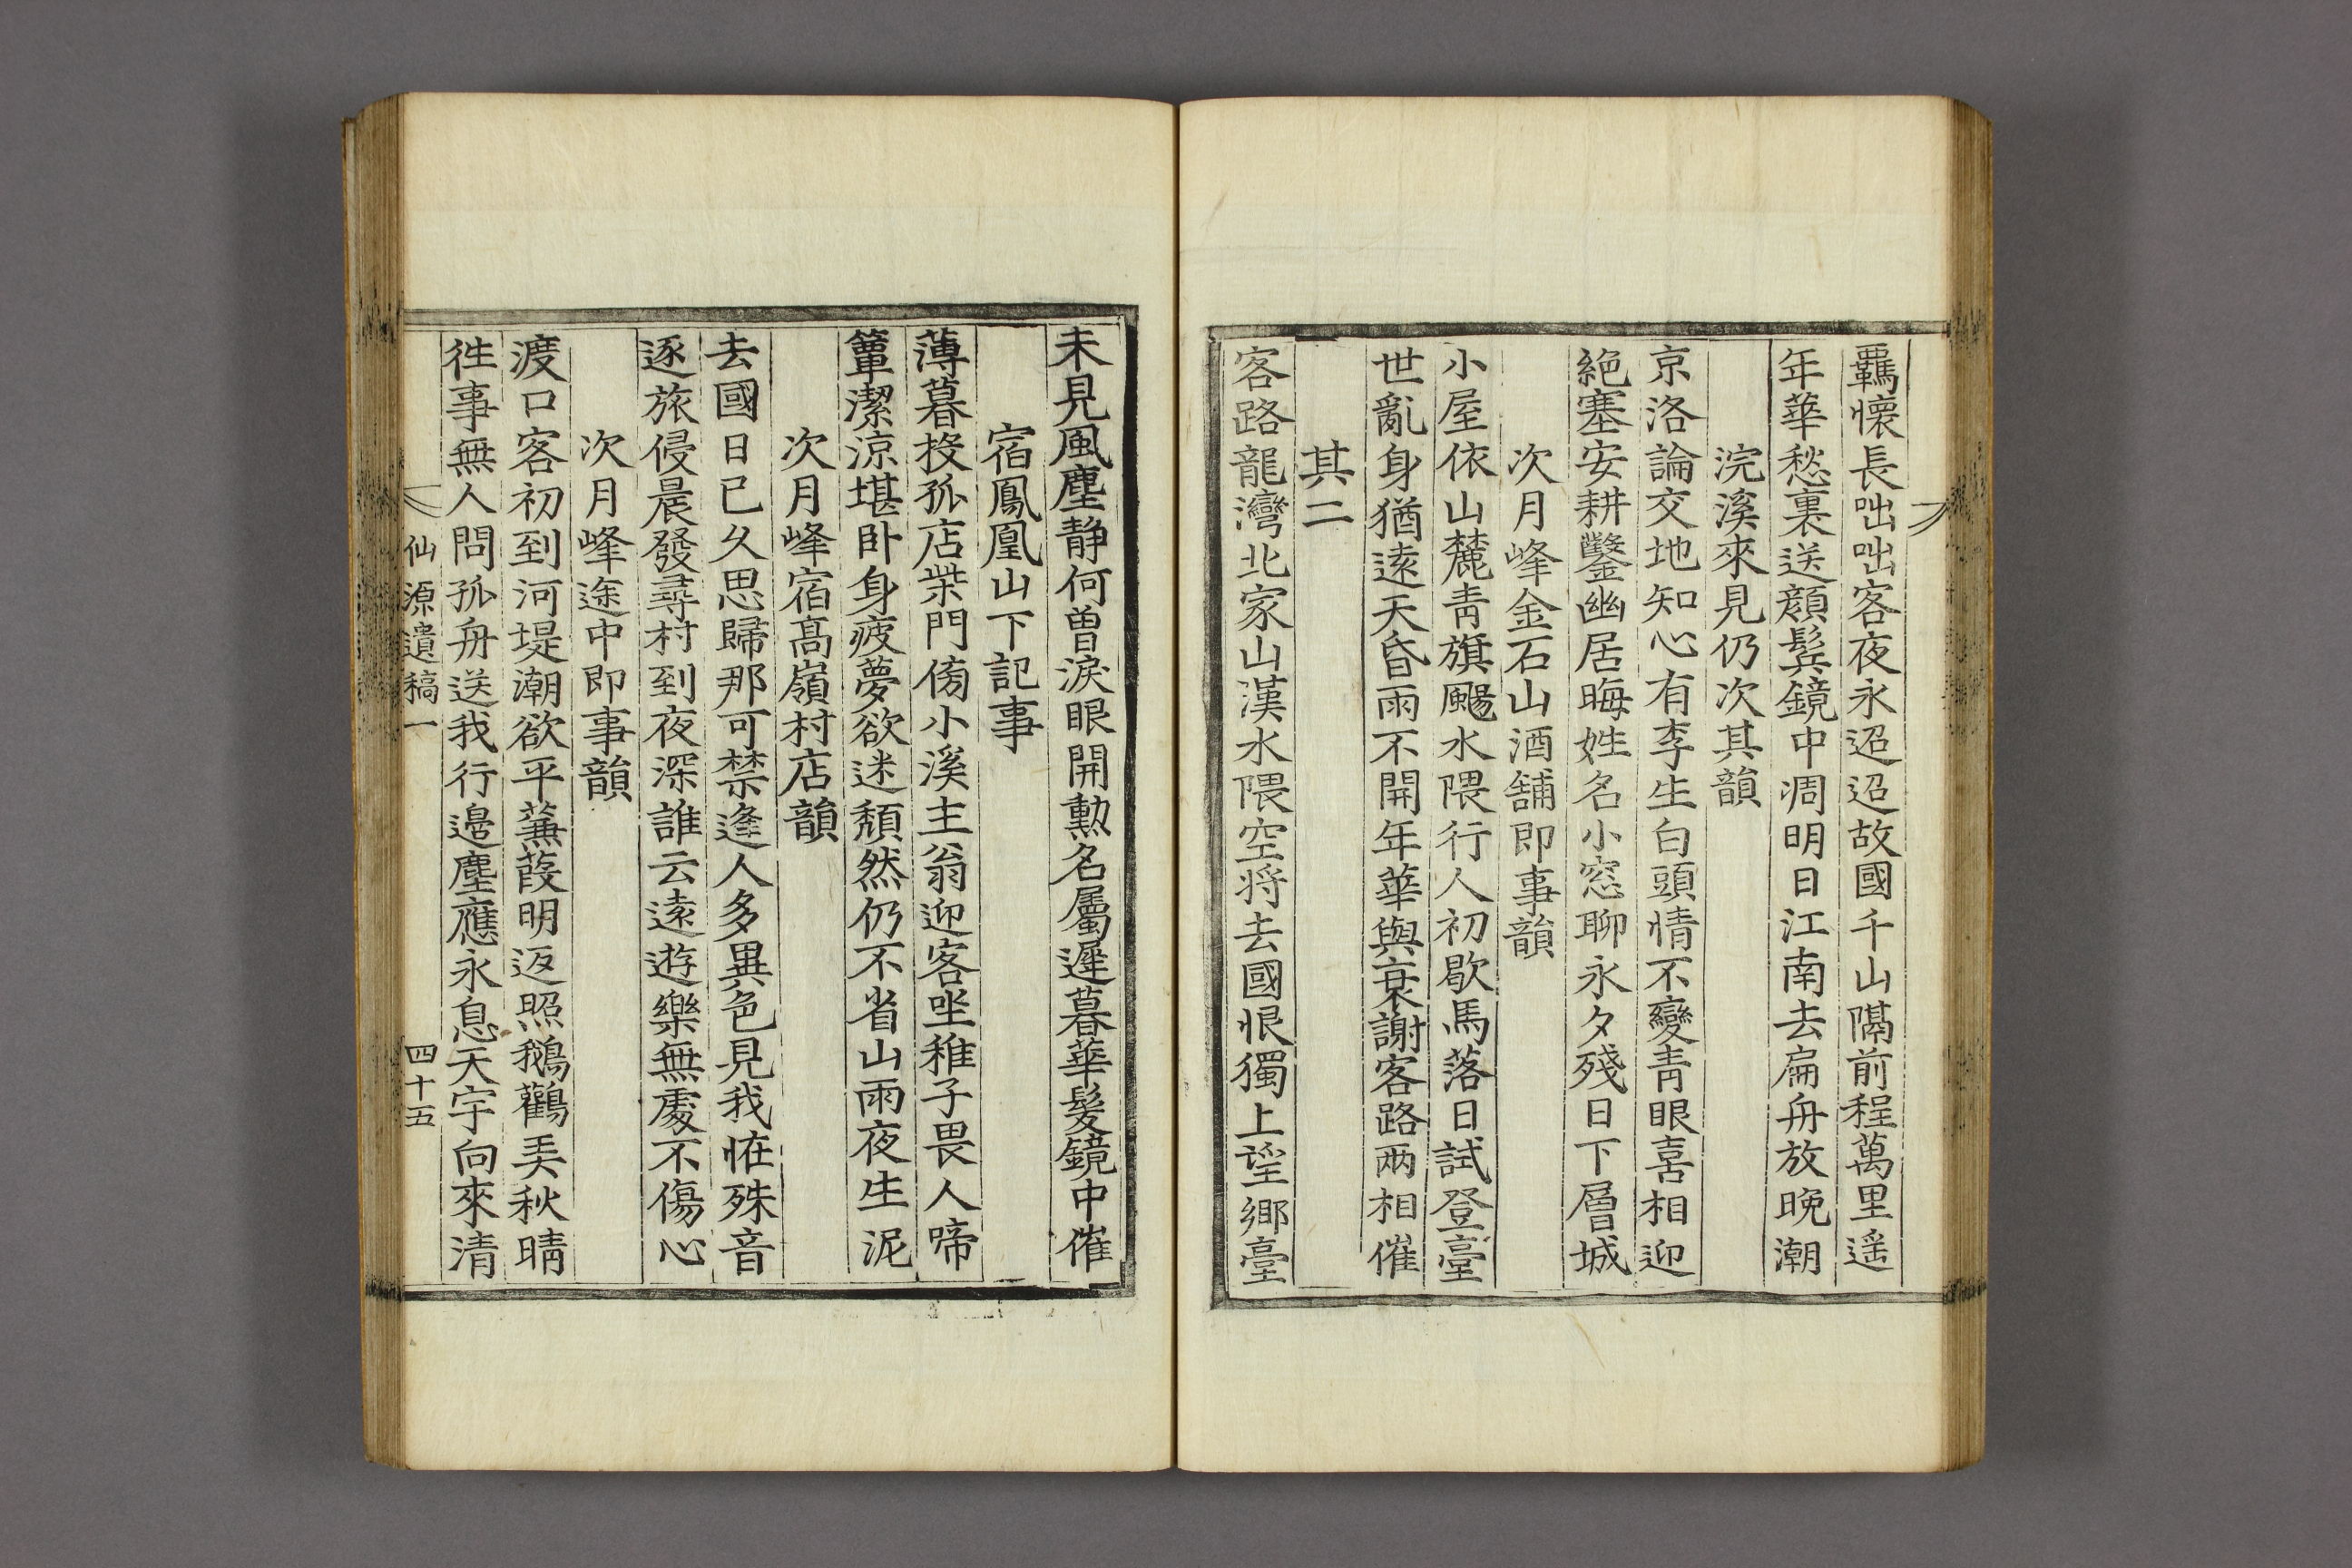 羈懷長咄咄客夜永迢迢故國千山隔前程萬里遥
年華愁裏送顔鬂鏡中凋明日江南去扁舟放晩潮
浣溪來見仍次其韻
京洛論交地知心有李生白頭情不變青眼喜相迎
絶塞安耕鑿幽居晦姓名小窓聊永夕殘日下層城
次月峰金石山酒舖即事韻
小屋依山麓青旗颺水隈行人初歇馬落日試登臺
世亂身猶遠天昏雨不開年華與衰謝客路兩相催
其二
客路龍灣北家山漢水隈空将去國恨獨上望郷臺
未見風塵静何曽淚眼開勲名屬遲暮華髪鏡中催
宿鳳凰山下記事
薄暮投孤店柴門傍小溪主翁迎客坐稚子畏人啼
簟潔凉堪卧身疲夢欲迷頽然仍不省山雨夜生泥
次月峰宿髙嶺村店韻
去國日已久思歸那可禁逢人多異色見我恠殊音
逐旅侵晨發尋村到夜深誰云遠遊樂無處不傷心
次月峰途中即事韻
渡口客初到河堤潮欲平蒹葭明返照鵝鸛弄秋晴
徃事無人問孤舟送我行邉塵應永息天宇向來清
仙源遺稿一
四十五